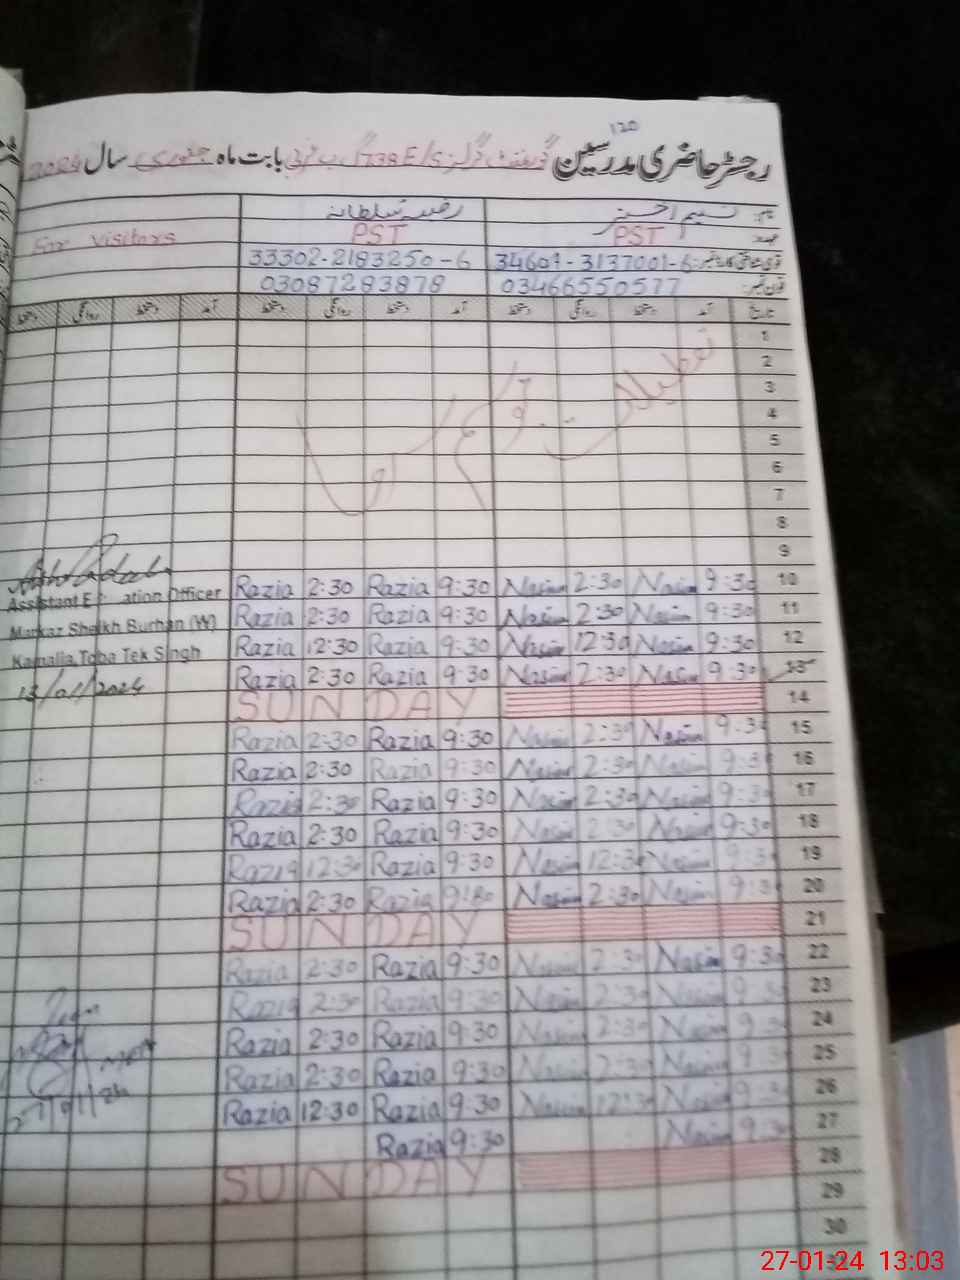 120
رجسٹر حاضری مدرسین گورنمنٹ گرلز 738E/S گ ب غربی بابت ماہ جنوری سال 2024
نام: نسیم اختر رضیہ سلطانہ
عہدہ PST PST For visitors
قومی شناختی کارڈ نمبر: 34601-3137001-6 33302-2183250-6
فون نمبر: 03466550577 03087283878
تاریخ آمد دستخط روانگی دستخط آمد دستخط روانگی دستخط آمد دستخط روانگی دستخط
1
2
3
4
5
6
7
8
9
تعطیلات موسم سرما
Razia 2:30 Razia 9:30 Nasim 2:30 Nasim 9:30 10
Assistant Education Officer
Razia 2:30 Razia 9:30 Nasim 2:30 Nasim 9:30 11
Markaz Sheikh Burhan (W)
Razia 12:30 Razia 9:30 Nasim 12:30 Nasim 9:30 12
Kamalia, Toba Tek Singh
Razia 2:30 Razia 9:30 Nasim 2:30 Nasim 9:30 13
13/01/2024
SUNDAY 14
Razia 2:30 Razia 9:30 Nasim 2:30 Nasim 9:30 15
Razia 2:30 Razia 9:30 Nasim 2:30 Nasim 9:30 16
Razia 2:30 Razia 9:30 Nasim 2:30 Nasim 9:30 17
Razia 2:30 Razia 9:30 Nasim 2:30 Nasim 9:30 18
Razia 12:30 Razia 9:30 Nasim 12:30 Nasim 9:30 19
Razia 2:30 Razia 9:30 Nasim 2:30 Nasim 9:30 20
SUNDAY 21
Razia 2:30 Razia 9:30 Nasim 2:30 Nasim 9:30 22
Razia 2:30 Razia 9:30 Nasim 2:30 Nasim 9:30 23
Razia 2:30 Razia 9:30 Nasim 2:30 Nasim 9:30 24
Razia 2:30 Razia 9:30 Nasim 2:30 Nasim 9:30 25
Razia 12:30 Razia 9:30 Nasim 12:30 Nasim 9:30 26
27/01/24
Razia 9:30 Nasim 9:30 27
SUNDAY 28
29
30
27-01-24 13:03